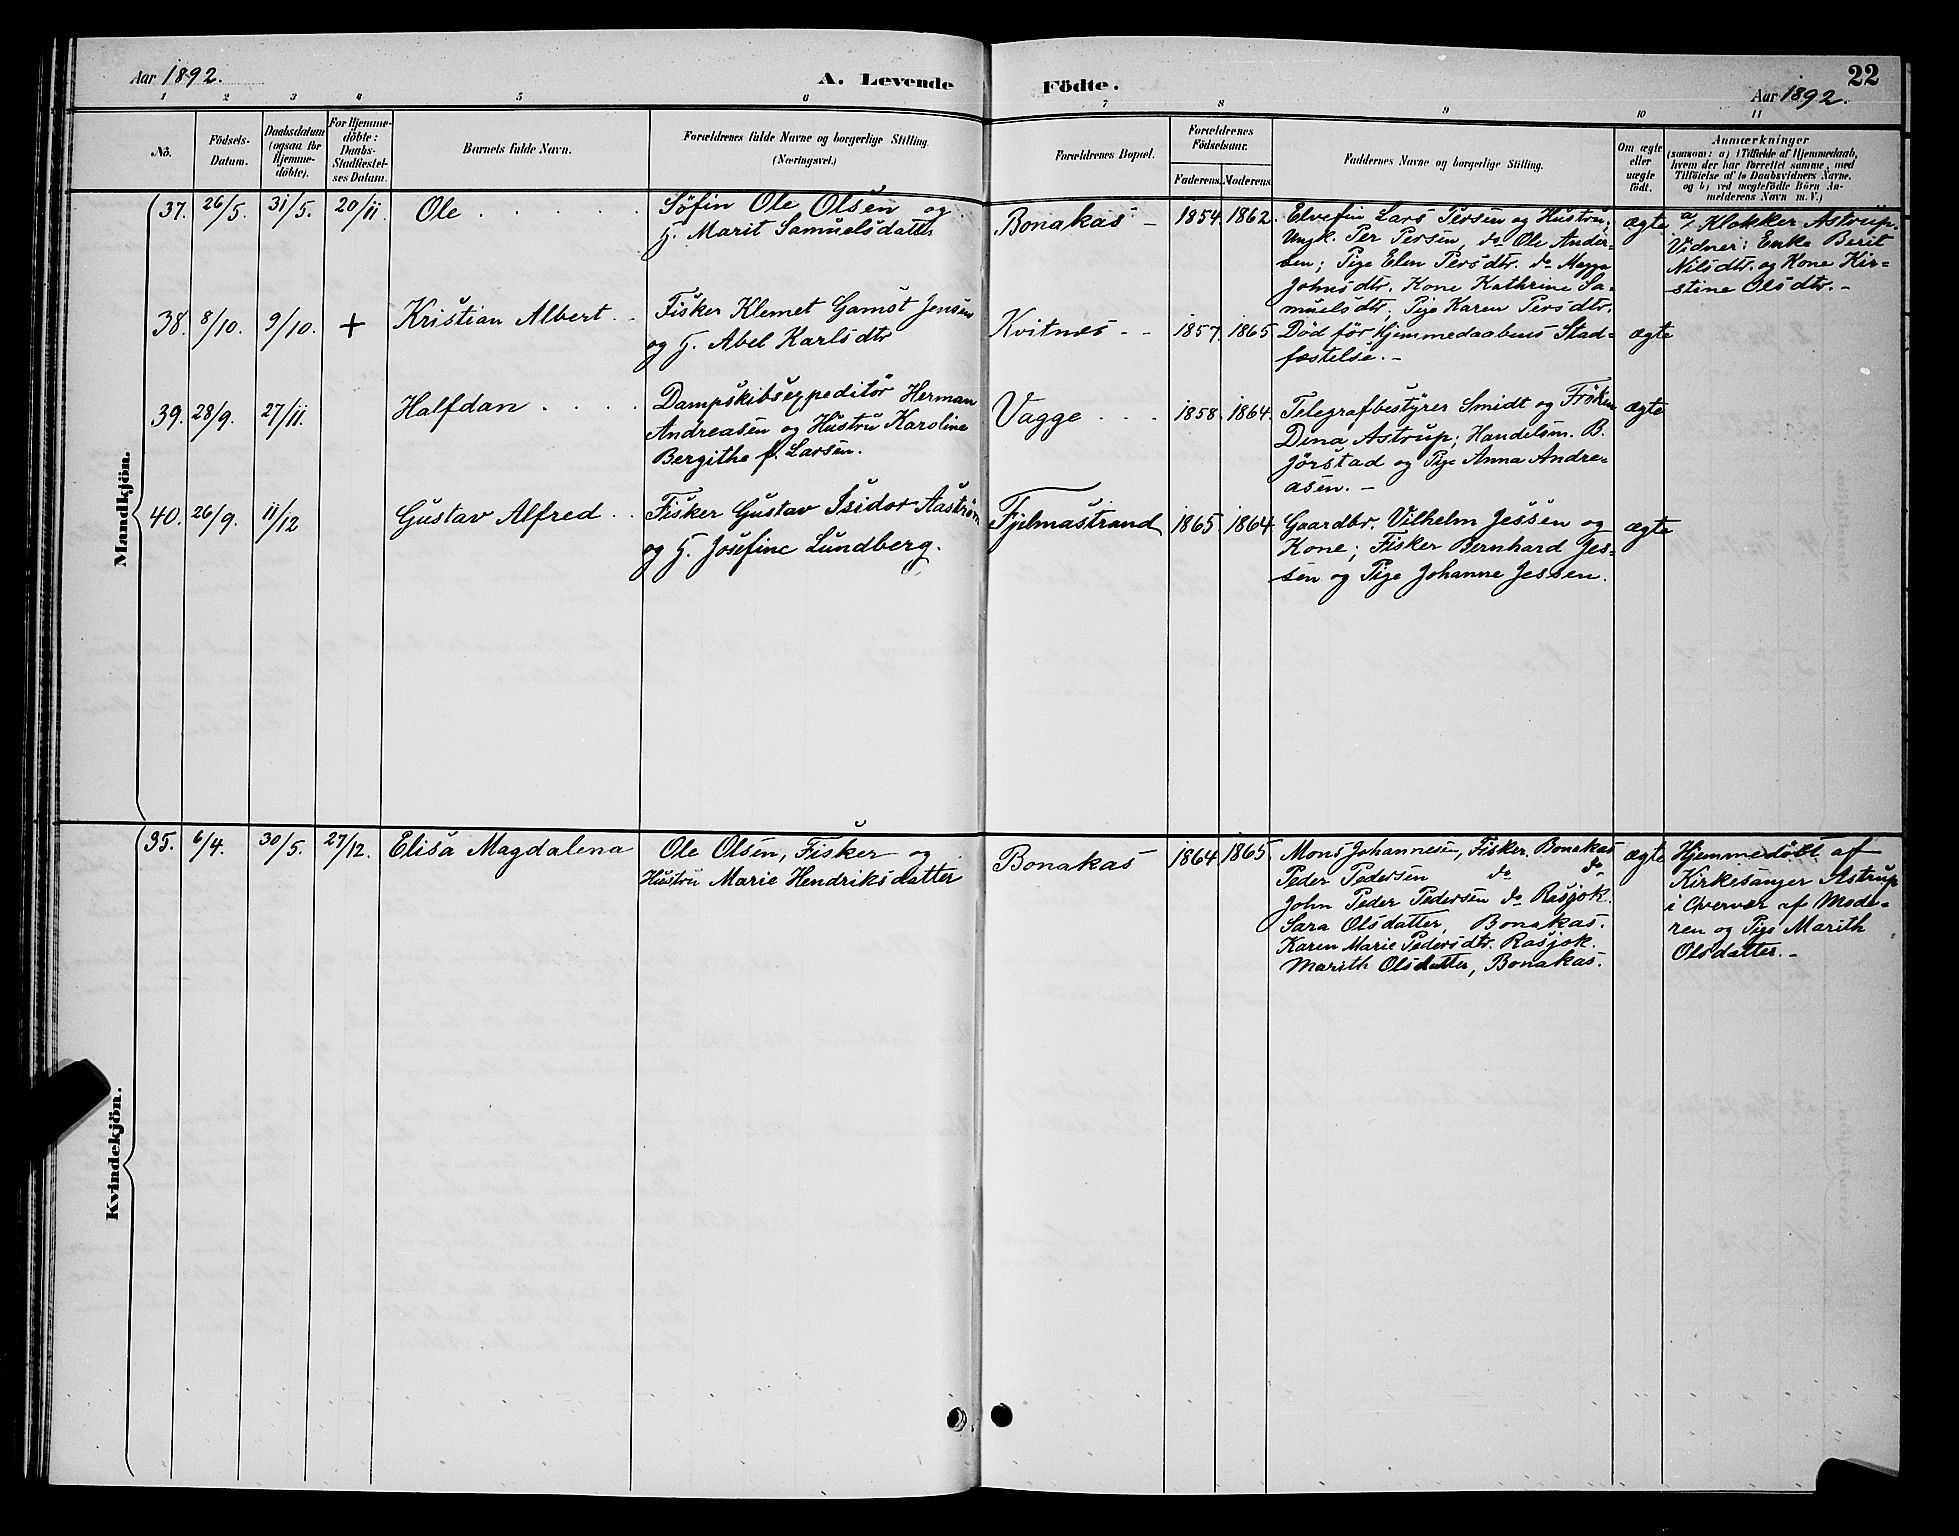 Aar 1892.
A. Levende Födte.
22
Aar 1892.
1 2 3 4 5 6 7 8 9 10 11
No.
Födsels-
Datum.
Daabsdatum
(ogsaa for
Hjemme-
döbte).
For Hjemme-
döbte:
Daabs-
Stadfæstel-
ses Datum.
Barnets fulde Navn.
Forældrenes fulde Navne og borgerlige Stilling.
(Næringsvei.)
Forældrenes Bopæl.
Forældrenes
Födselsaar.
Faderens. Moderens.
Faddernes Navne og borgerlige Stilling.
Om ægte
eller
uægte
födt.
Anmærkninger
(saasom: a) i Tilfælde af Hjemmedaab,
hvem der har forrettet samme, med
Tilföielse af to Daabsvidners Navne,
og b) ved uægtefödte Börn An-
melderens Navn m. V.)
Mandkjön.
37. 26/5. 31/5. 20/11 Ole
Søfin Ole Olsen og
H. Marit Samuelsdatter
Bonakas - 1854. 1862.
Elvefin Lars Persen og Hustru;
Ungk. Per Persen, do Ole Ander-
sen; Pige Elen Persdtr. do Magga
Johnsdtr. Kone Kathrine Sa-
muelsdtr; Pige Karen Persdtr.
ægte
a/ Klokker Astrup.
Vidner: Enke Berit
Nilsdtr. og Kone Kir-
stine Olsdtr. -
38. 8/10. 9/10. + Kristian Albert
Fisker Klemet Gamst Jensen
og H. Abel Karlsdtr
Kvitnes - - 1857. 1865
Død før Hjemmedaabens Stad-
fæstelse. -
ægte
39. 28/9. 27/11. Halfdan
Dampskibsexpeditör Herman
Andreasen og Hustru Karoline
Bergithe f. Larsen.
Vagge 1858. 1864.
Telegrafbestyrer Smidt og Frøken
Dina Astrup; Handelsm. B.
Jørstad og Pige Anna Andre-
asen. -
ægte
40. 26/9. 11/12 Gustav Alfred
Fisker Gustav Isidor Aaström
og H. Josefine Lundberg.
Fjelmastrand 1865 1864
Gaardbr. Vilhelm Jessen og
Kone; Fisker Bernhard Jes-
sen og Pige Johanne Jessen.
ægte
Kvindekjön.
35. 6/4. 30/5. 27/12. Elisa Magdalena
Ole Olsen, Fisker og
Hustru Marie Hendriksdatter
Bonakas 1864 1865.
Mons Johannesen, Fisker. Bonakas
Peder Pedersen do do
John Peder Pedersen do Rasjok.
Sara Olsdatter, Bonakas.
Karen Marie Pedersdtr. Rasjok.
Marith Olsdatter, Bonakas.
ægte
Hjemmedöbt af
Kirkesanger Astrup
i Overvær af Mode-
ren og Pige Marith
Olsdatter. -